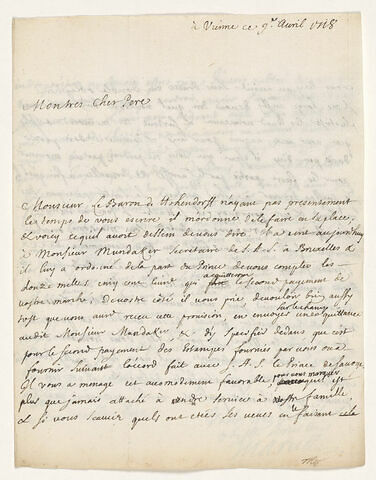 à Vienne ce 9e Avril 1718
Montres Cher Pere
Monsieur le Baron de Hohendorff n'ayant pas presentement
le temps de vous escrire il m'ordonne de le faire en sa place,
& voicy ce qu'il avoit dessein de vous dire. Il a ecrit aujourdhuy
à Monsieur Mandaker Secretaire de S. A. S. à Bruxelles &
il luy a ordonné de la part du Prince de vous compter les
douze milles cinq cent livres qui acquitteront
font le second payement de
vostre marché; de vostre côté il vous prie de vouloir bien aussy
tost que vous aurez receu cette provision, en envoyer un acquittance
audit Monsieur Mandaker, & d'y specifier dedans que c'est
pour le second payement des Estampes fournies par vous ou a
fournir suivant l'accord fait avec S. A. S. le Prince de Savoye
Il vous a menagé cet accomodement favorable pour vous marquer
qu'il est
plus que jamais attaché à rendre service à vostre famille,
& si vous scavez quels ont estés ses veues en faisant cela